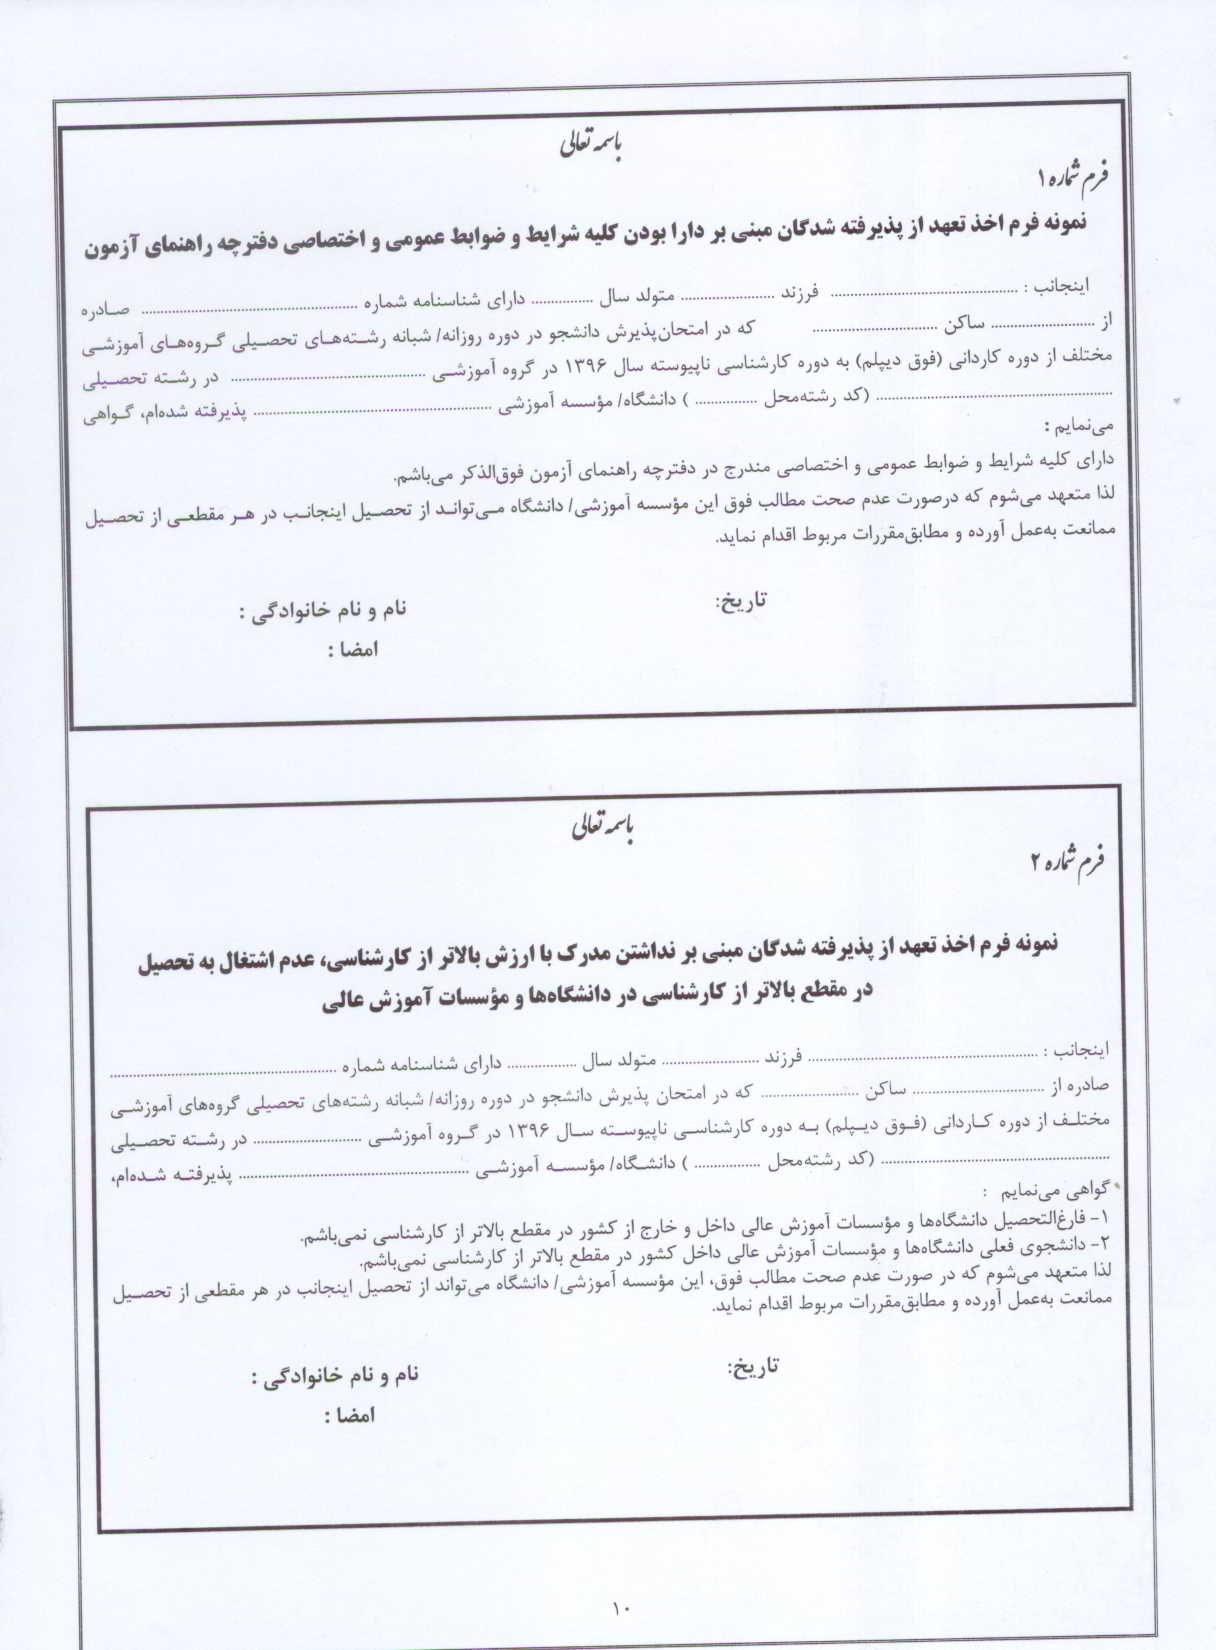 باسمه تعالی
فرم شماره ۱
نمونه فرم اخذ تعهد از پذیرفته شدگان مبنی بر دارا بودن کلیه شرایط و ضوابط عمومی و اختصاصی دفترچه راهنمای آزمون
اینجانب : ........................................ فرزند .................... متولد سال .............. دارای شناسنامه شماره ................................................ صـادره
از ........................ ساکن ............................ که در امتحان‌پذیرش دانشجو در دوره روزانه/ شبانه رشـته‌هـای تحصـیلی گـروه‌هـای آموزشـی
مختلف از دوره کاردانی (فوق دیپلم) به دوره کارشناسی ناپیوسته سال ۱۳۹۶ در گروه آموزشـی ........................................... در رشـته تحصـیلی
.................................................... (کد رشته‌محل .............. ) دانشگاه/ مؤسسه آموزشی .................................................... پذیرفته شده‌ام، گـواهی
می‌نمایم :
دارای کلیه شرایط و ضوابط عمومی و اختصاصی مندرج در دفترچه راهنمای آزمون فوق‌الذکر می‌باشم.
لذا متعهد می‌شوم که درصورت عدم صحت مطالب فوق این مؤسسه آموزشی/ دانشگاه مـی‌توانـد از تحصیل اینجانـب در هـر مقطعـی از تحصـیل
ممانعت به‌عمل آورده و مطابق‌مقررات مربوط اقدام نماید.
تاریخ: نام و نام خانوادگی :
امضا :
باسمه تعالی
فرم شماره ۲
نمونه فرم اخذ تعهد از پذیرفته شدگان مبنی بر نداشتن مدرک با ارزش بالاتر از کارشناسی، عدم اشتغال به تحصیل
در مقطع بالاتر از کارشناسی در دانشگاه‌ها و مؤسسات آموزش عالی
اینجانب : .................................................. فرزند ...................... متولد سال ................ دارای شناسنامه شماره ..................................................
صادره از ............................. ساکن ...................... که در امتحان پذیرش دانشجو در دوره روزانه/ شبانه رشته‌های تحصیلی گروه‌های آموزشـی
مختلـف از دوره کـاردانی (فـوق دیـپلم) بـه دوره کارشناسـی ناپیوسـته سـال ۱۳۹۶ در گـروه آموزشـی ........................ در رشـته تحصـیلی
.................................................. (کد رشته‌محل ............... ) دانشـگاه/ مؤسسـه آموزشـی .................................................. پذیرفتـه شـده‌ام،
گواهی می‌نمایم :
۱- فارغ‌التحصیل دانشگاه‌ها و مؤسسات آموزش عالی داخل و خارج از کشور در مقطع بالاتر از کارشناسی نمی‌باشم.
۲- دانشجوی فعلی دانشگاه‌ها و مؤسسات آموزش عالی داخل کشور در مقطع بالاتر از کارشناسی نمی‌باشم.
لذا متعهد می‌شوم که در صورت عدم صحت مطالب فوق، این مؤسسه آموزشی/ دانشگاه می‌تواند از تحصیل اینجانب در هر مقطعی از تحصـیل
ممانعت به‌عمل آورده و مطابق‌مقررات مربوط اقدام نماید.
تاریخ: نام و نام خانوادگی :
امضا :
۱۰